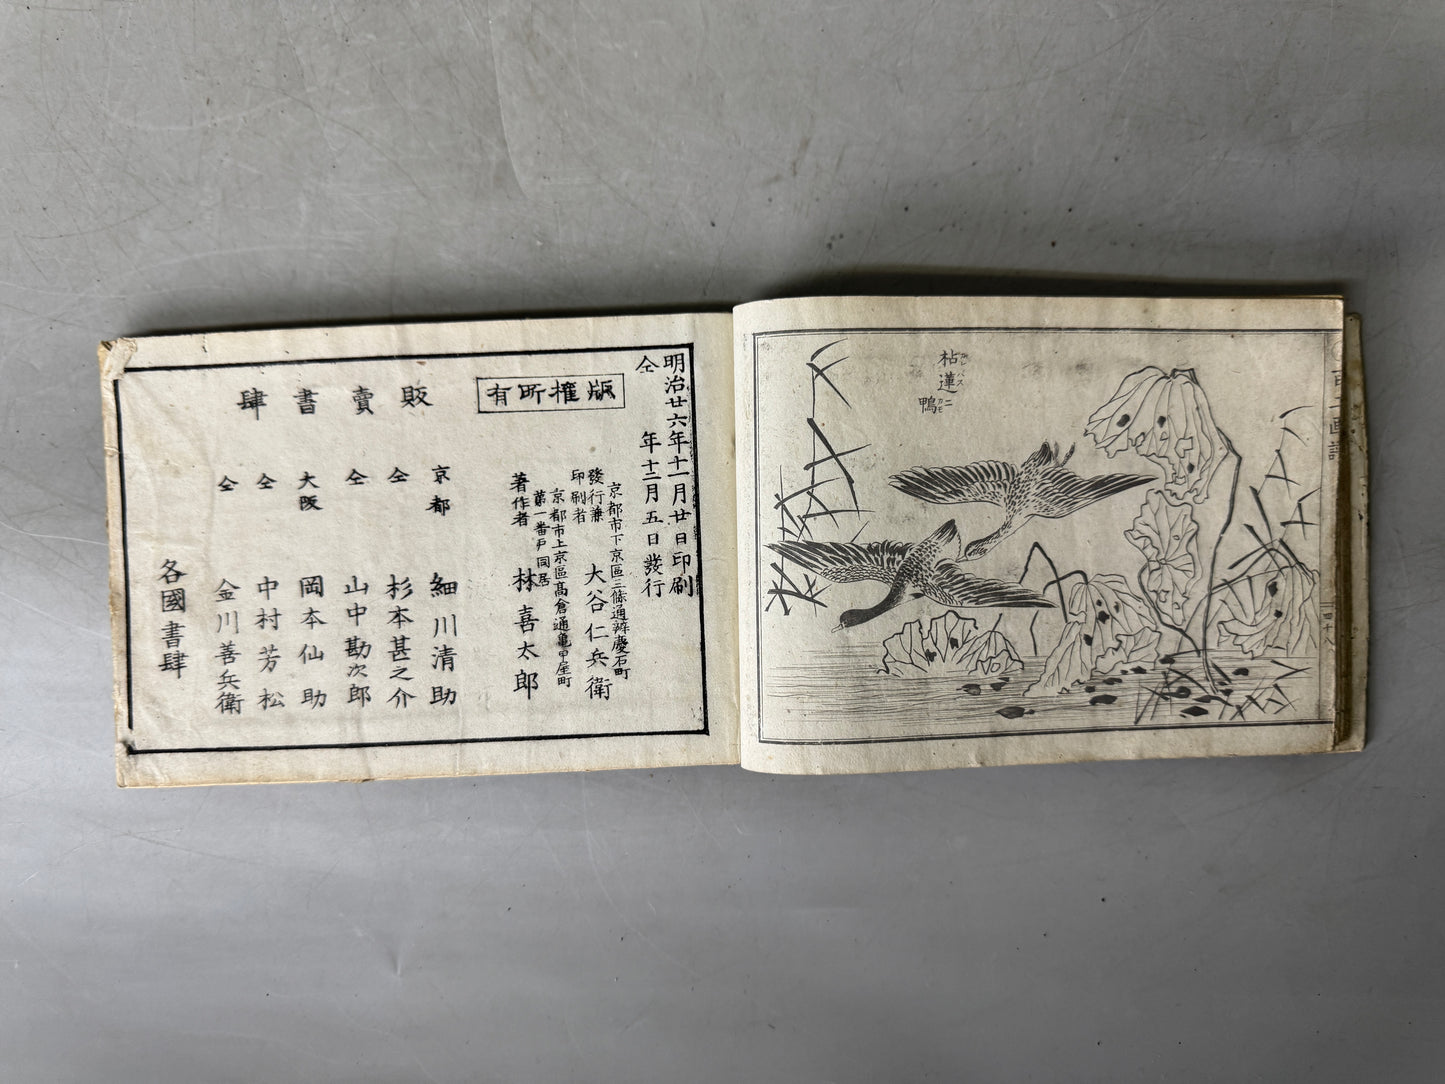 枯蓮ニ
鴨
カレハス
カモ
明治廿六年十一月廿日印刷
仝 年十二月五日發行
版權所有
京都市下京區三條通辨慶石町
發行兼
印刷者
大谷仁兵衛
京都市上京區高倉通亀甲屋町
第一番戸同居
著作者 林喜太郎
販賣書肆
京都 細川清助
仝 杉本甚之介
仝 山中勘次郎
大阪 岡本仙助
仝 中村芳松
仝 金川善兵衛
各國書肆